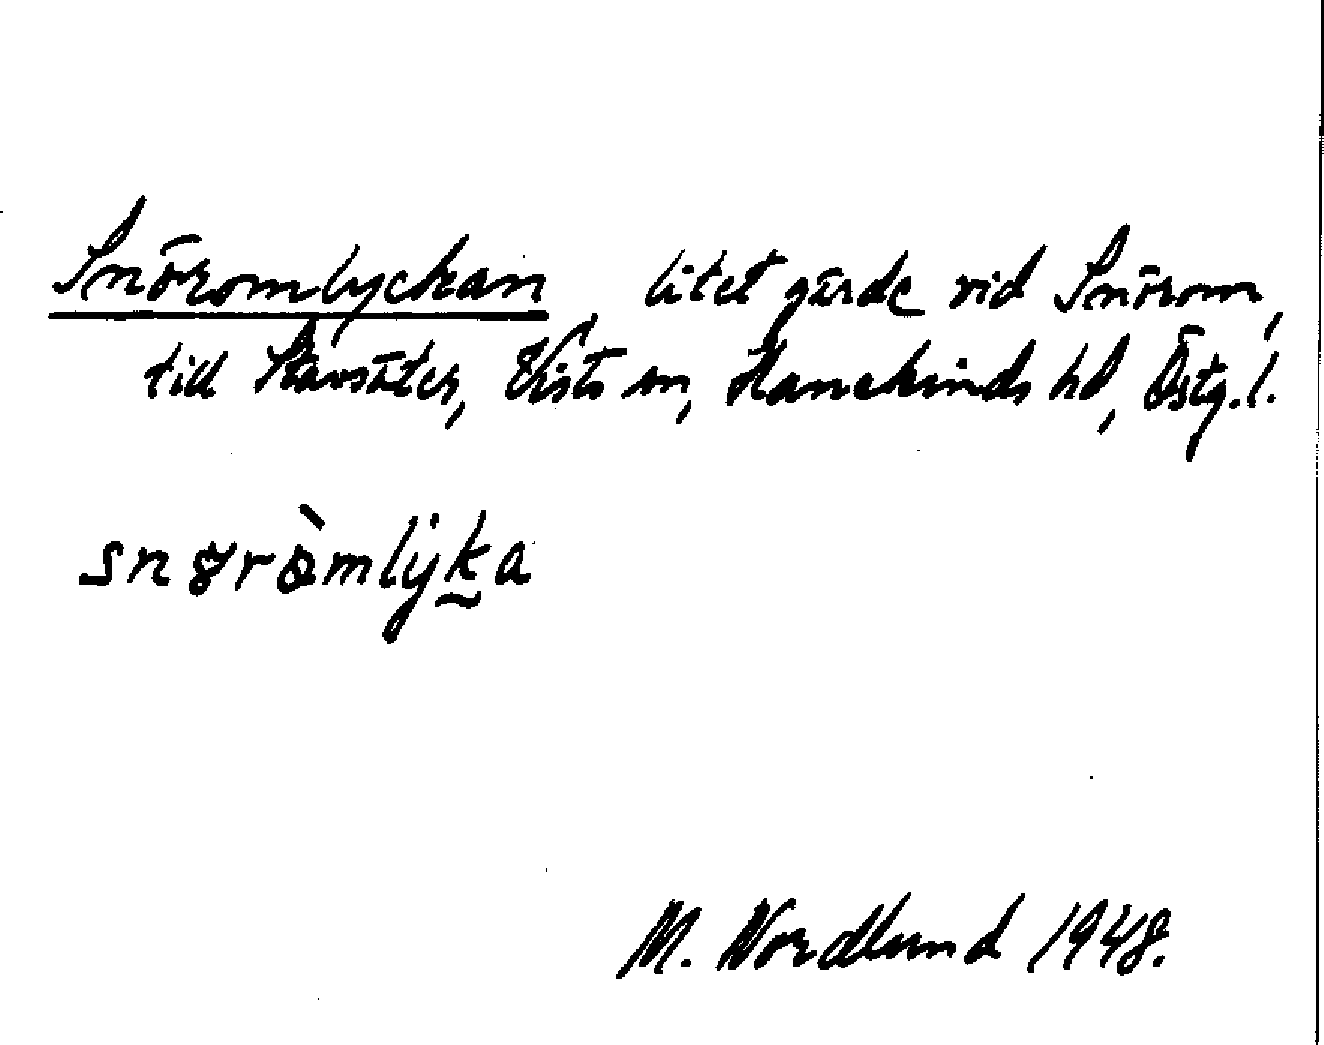 Snöromlyckan, litet gärde vid Snörom,
till Stavsäter, Vists sn, Hanekinds hd, Östg. l.
snøròmlyka
M. Nordlund 1948.